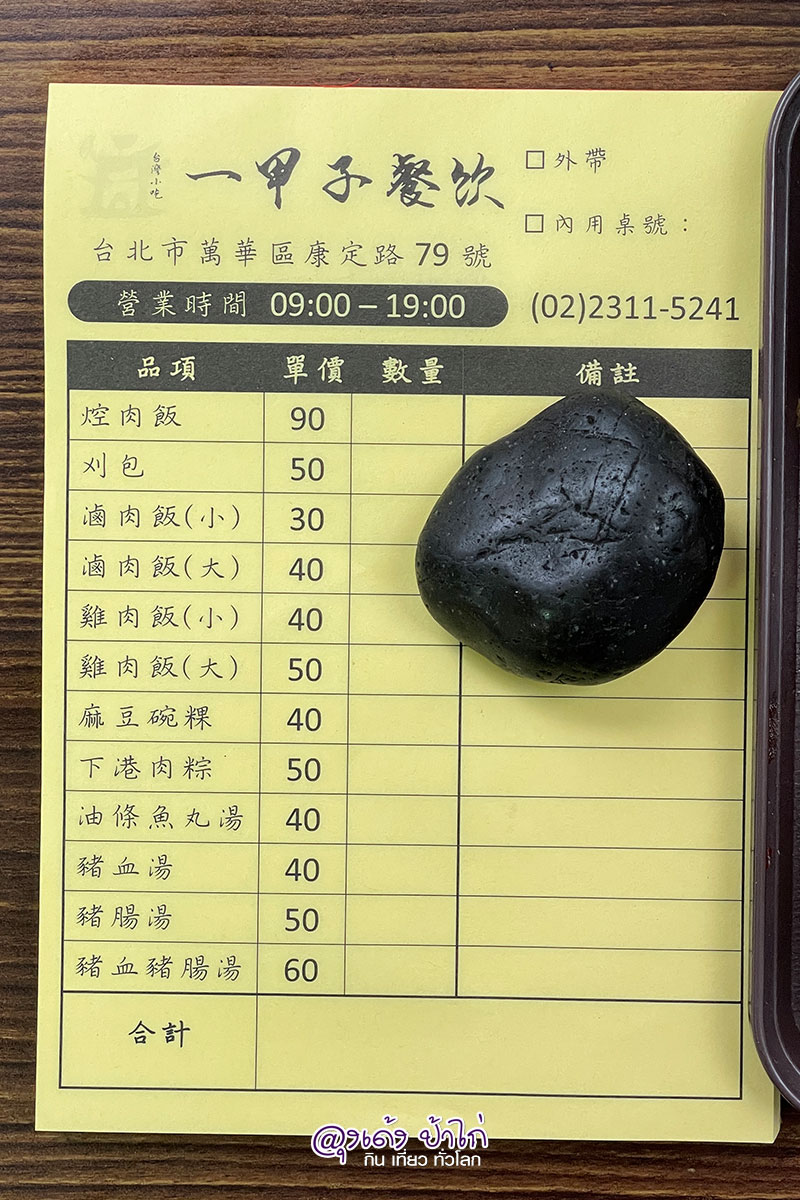 台灣小吃
一甲子餐飲
□外帶
□內用桌號：
台北市萬華區康定路 79 號
營業時間 09:00 – 19:00
(02)2311-5241
品項 單價 數量 備註
焢肉飯 90
刈包 50
滷肉飯(小) 30
滷肉飯(大) 40
雞肉飯(小) 40
雞肉飯(大) 50
麻豆碗粿 40
下港肉粽 50
油條魚丸湯 40
豬血湯 40
豬腸湯 50
豬血豬腸湯 60
合計
ลุงเด้ง ป้าไก่
กิน เที่ยว ทั่วโลก